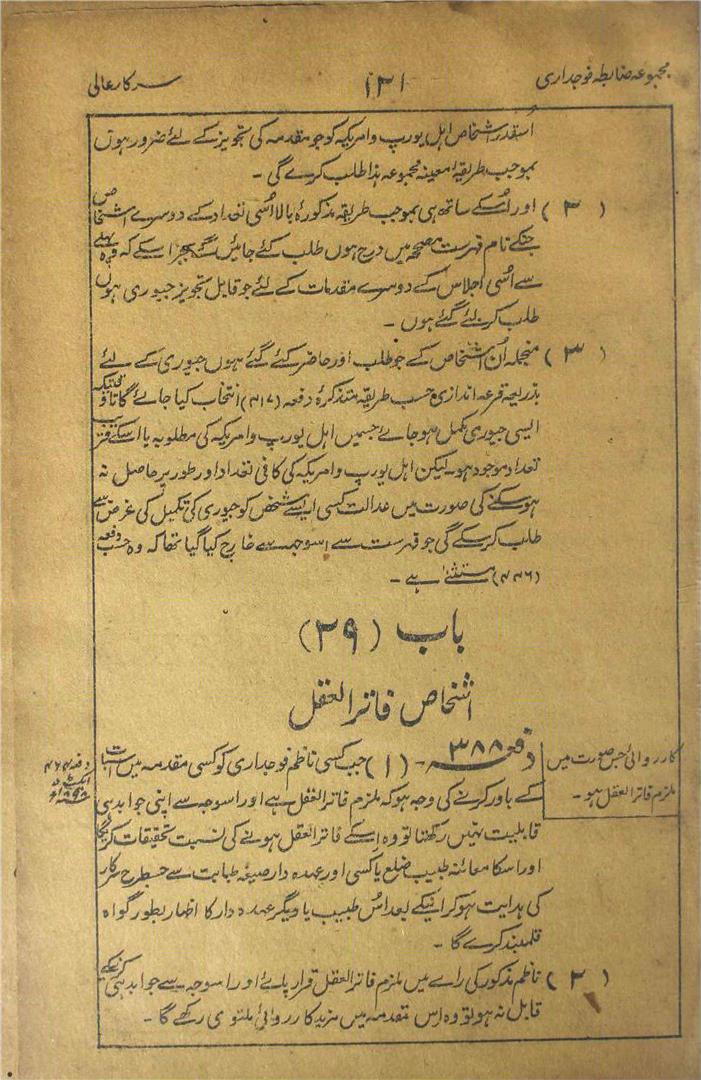 مجموعہ ضابطہ فوجداری
۱۳۱
سرکار عالی
اُسقدر اشخاص اہل یورپ و امریکہ کو جو مقدمہ کی تجویز کے لئے ضرور ہوں
بموجب طریقہ معینہ مجموعہ ہذا طلب کرے گی ۔
(۲) اور اُسکے ساتھ ہی بموجب طریقہ مذکورۂ بالا اُسی تعداد کے دوسرے اشخاص
جنکے نام فہرست مصححہ میں درج ہوں طلب کئے جائیں گے بجز اسکے کہ وہ پہلے
سے اُسی اجلاس کے دوسرے مقدمات کے لئے جو قابل تجویز جیوری ہوں
طلب کرلئے گئے ہوں ۔
(۳) منجملہ اُن اشخاص کے جو طلب اور حاضر کئے گئے ہوں جیوری کے لئے
بذریعہ قرعہ اندازی حسب طریقہ متذکرۂ دفعہ (۴۱۷) انتخاب کیا جائے گا تاوقتیکہ
ایسی جیوری مکمل ہو جائے جسمیں اہل یورپ و امریکہ کی مطلوبہ یا اسکے قریب
تعداد موجود ہو۔ لیکن اہل یورپ و امریکہ کی کافی تعداد اور طور پر حاصل نہ
ہوسکنے کی صورت میں عدالت کسی ایسے شخص کو جیوری کی تکمیل کی غرض سے
طلب کرسکے گی جو فہرست سے اسوجہ سے خارج کیا گیا تھا کہ وہ حسب دفعہ
(۴۳۶) مستثنےٰ ہے ۔
باب (۲۹)
اشخاص فاتر العقل
کارروائی جس صورت میں
ملزم فاتر العقل ہو ۔
دفعہ ۳۸۸ ۔ (۱) جب کسی ناظم فوجداری کو کسی مقدمہ میں اسبات
دفعہ ۴۶۴
ایکٹ ۵
۱۸۹۸ء
کے باور کرنے کی وجہ ہو کہ ملزم فاتر العقل ہے اور اسوجہ سے اپنی جوابدہی
قابلیت نہیں رکھتا تو وہ اسکے فاتر العقل ہونے کی نسبت تحقیقات کریگا
اور اسکا معائنہ طبیب ضلع یا کسی اور عہدہ دار صیغہ طبابت سے جسطرح سرکار
کی ہدایت ہو کرائیکے بعد اُس طبیب یا دیگر عہدہ دار کا اظہار بطور گواہ
قلمبند کرے گا ۔
(۲) ناظم مذکور کی رائے میں ملزم فاتر العقل قرار پائے اور اسوجہ سے جوابدہی کرنیکے
قابل نہ ہو تو وہ اس مقدمہ میں مزید کارروائی ملتوی رکھے گا ۔